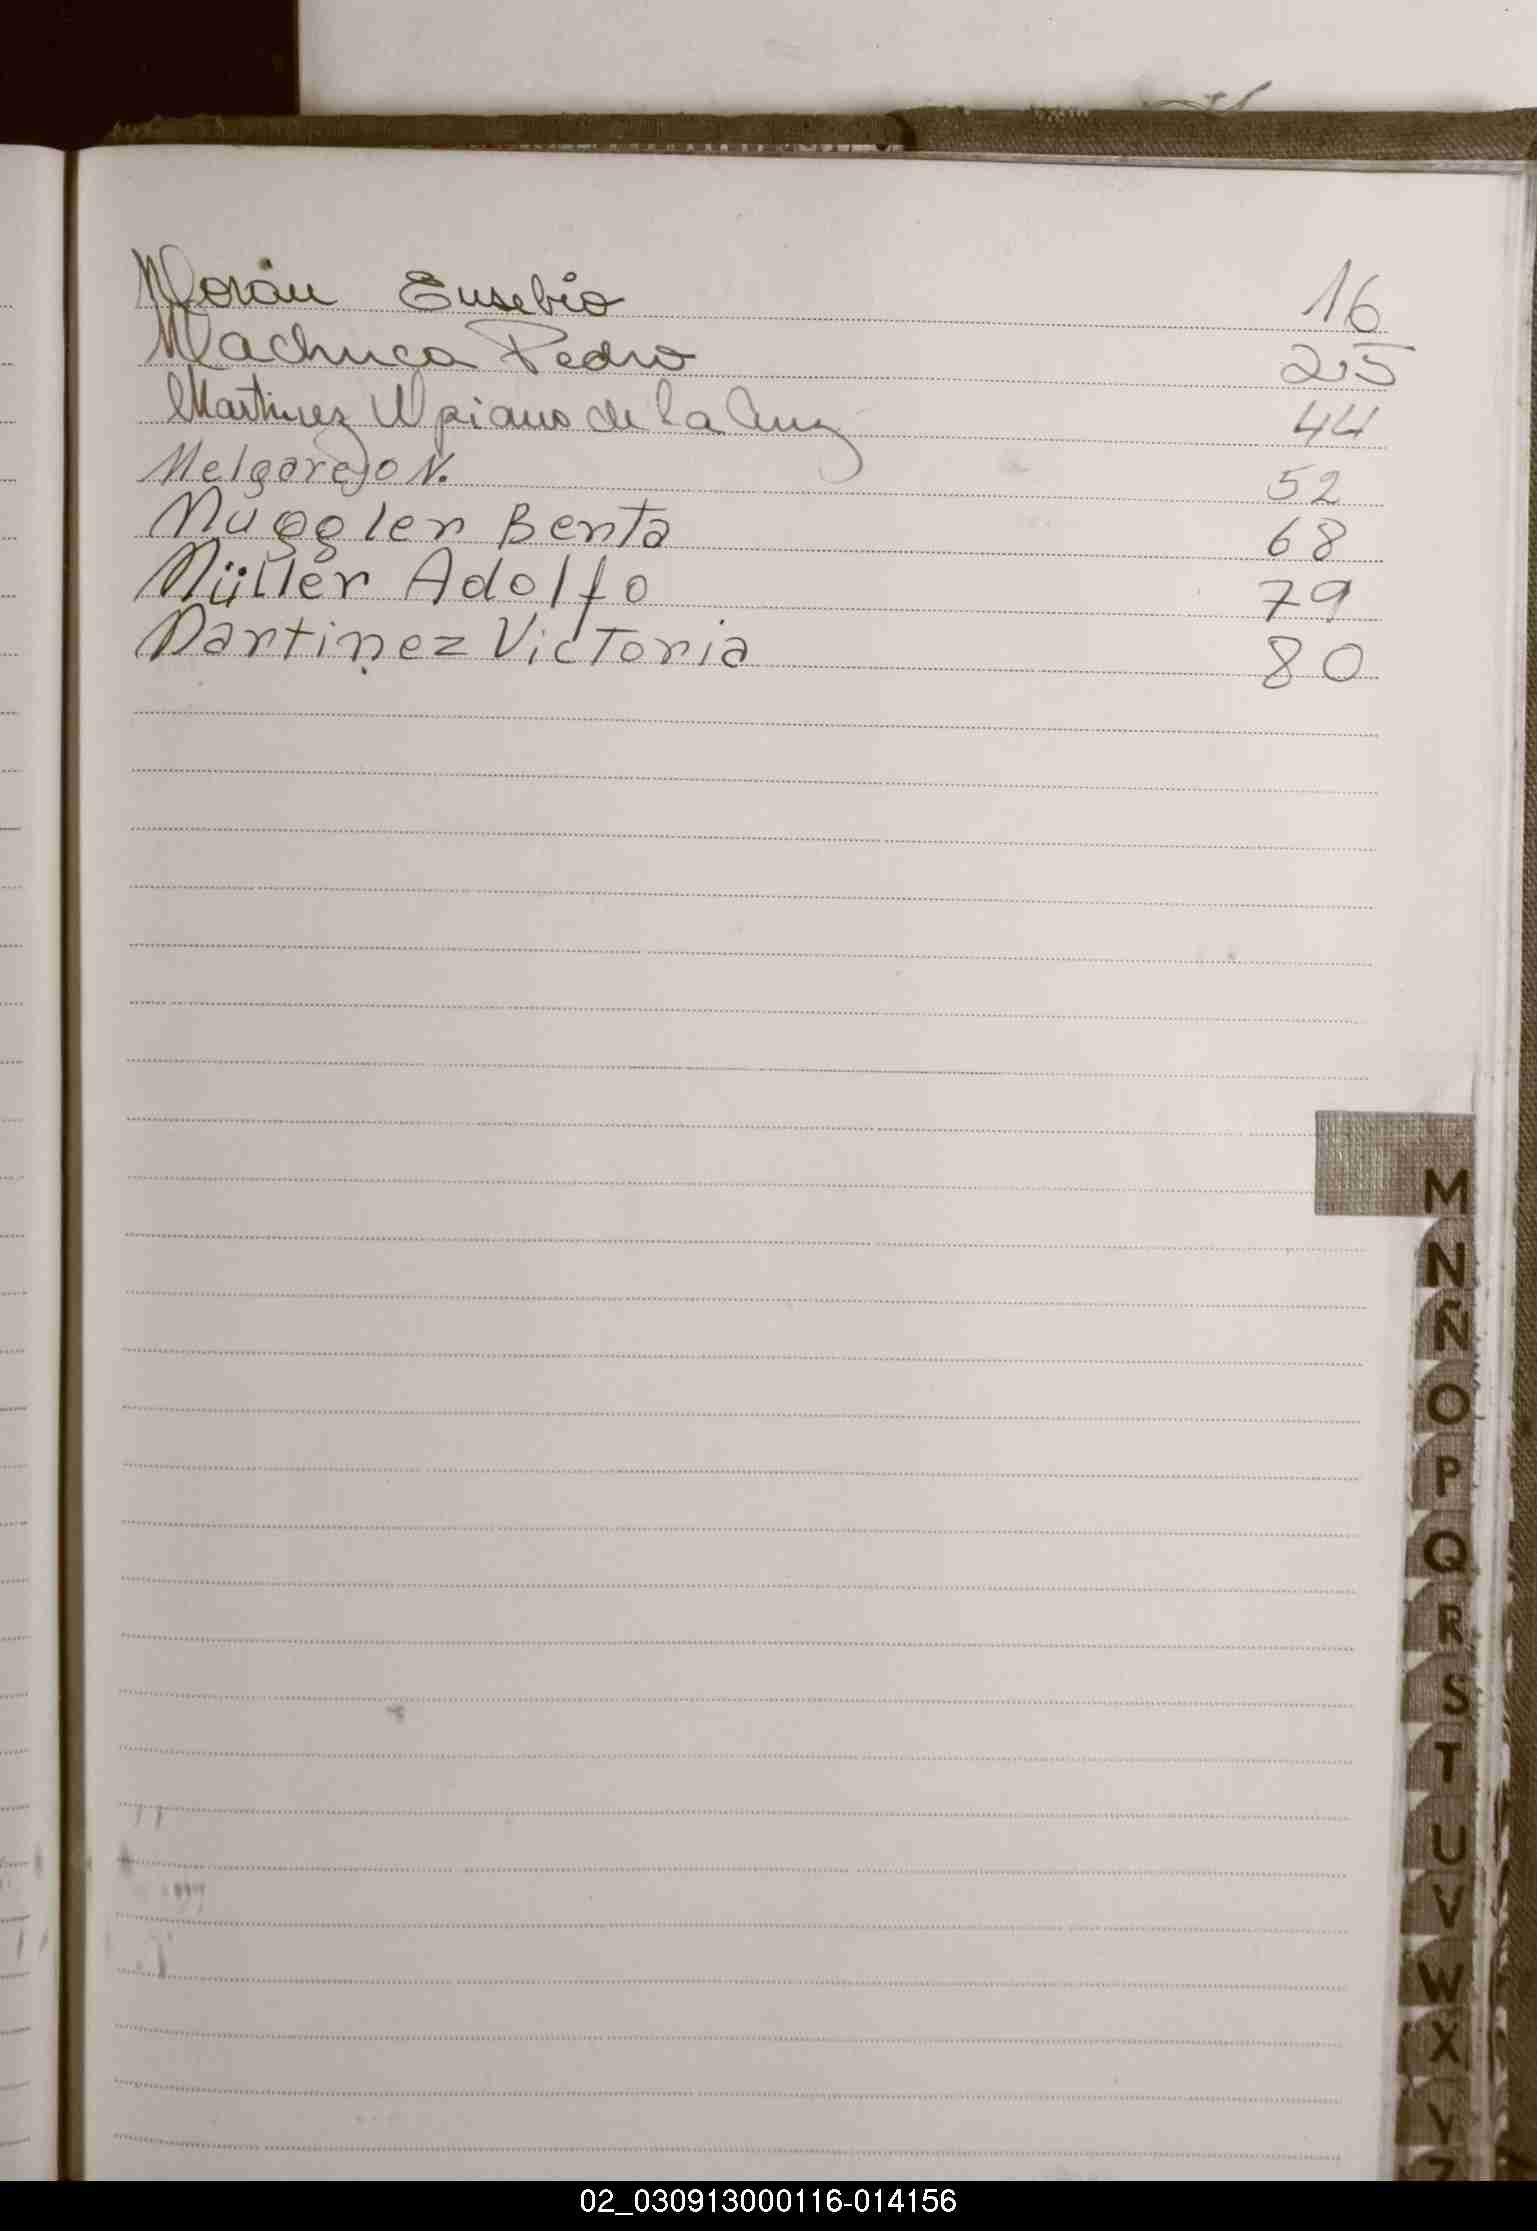 Morán Eusebio 16
Machuca Pedro 25
Martinez Ulpiano de la Cruz 44
Melgarejo N. 52
Muggler Berta 68
Müller Adolfo 79
Martinez Victoria 80
M
N
Ñ
O
P
Q
R
S
T
U
V
W
X
Y
Z
02_030913000116-014156